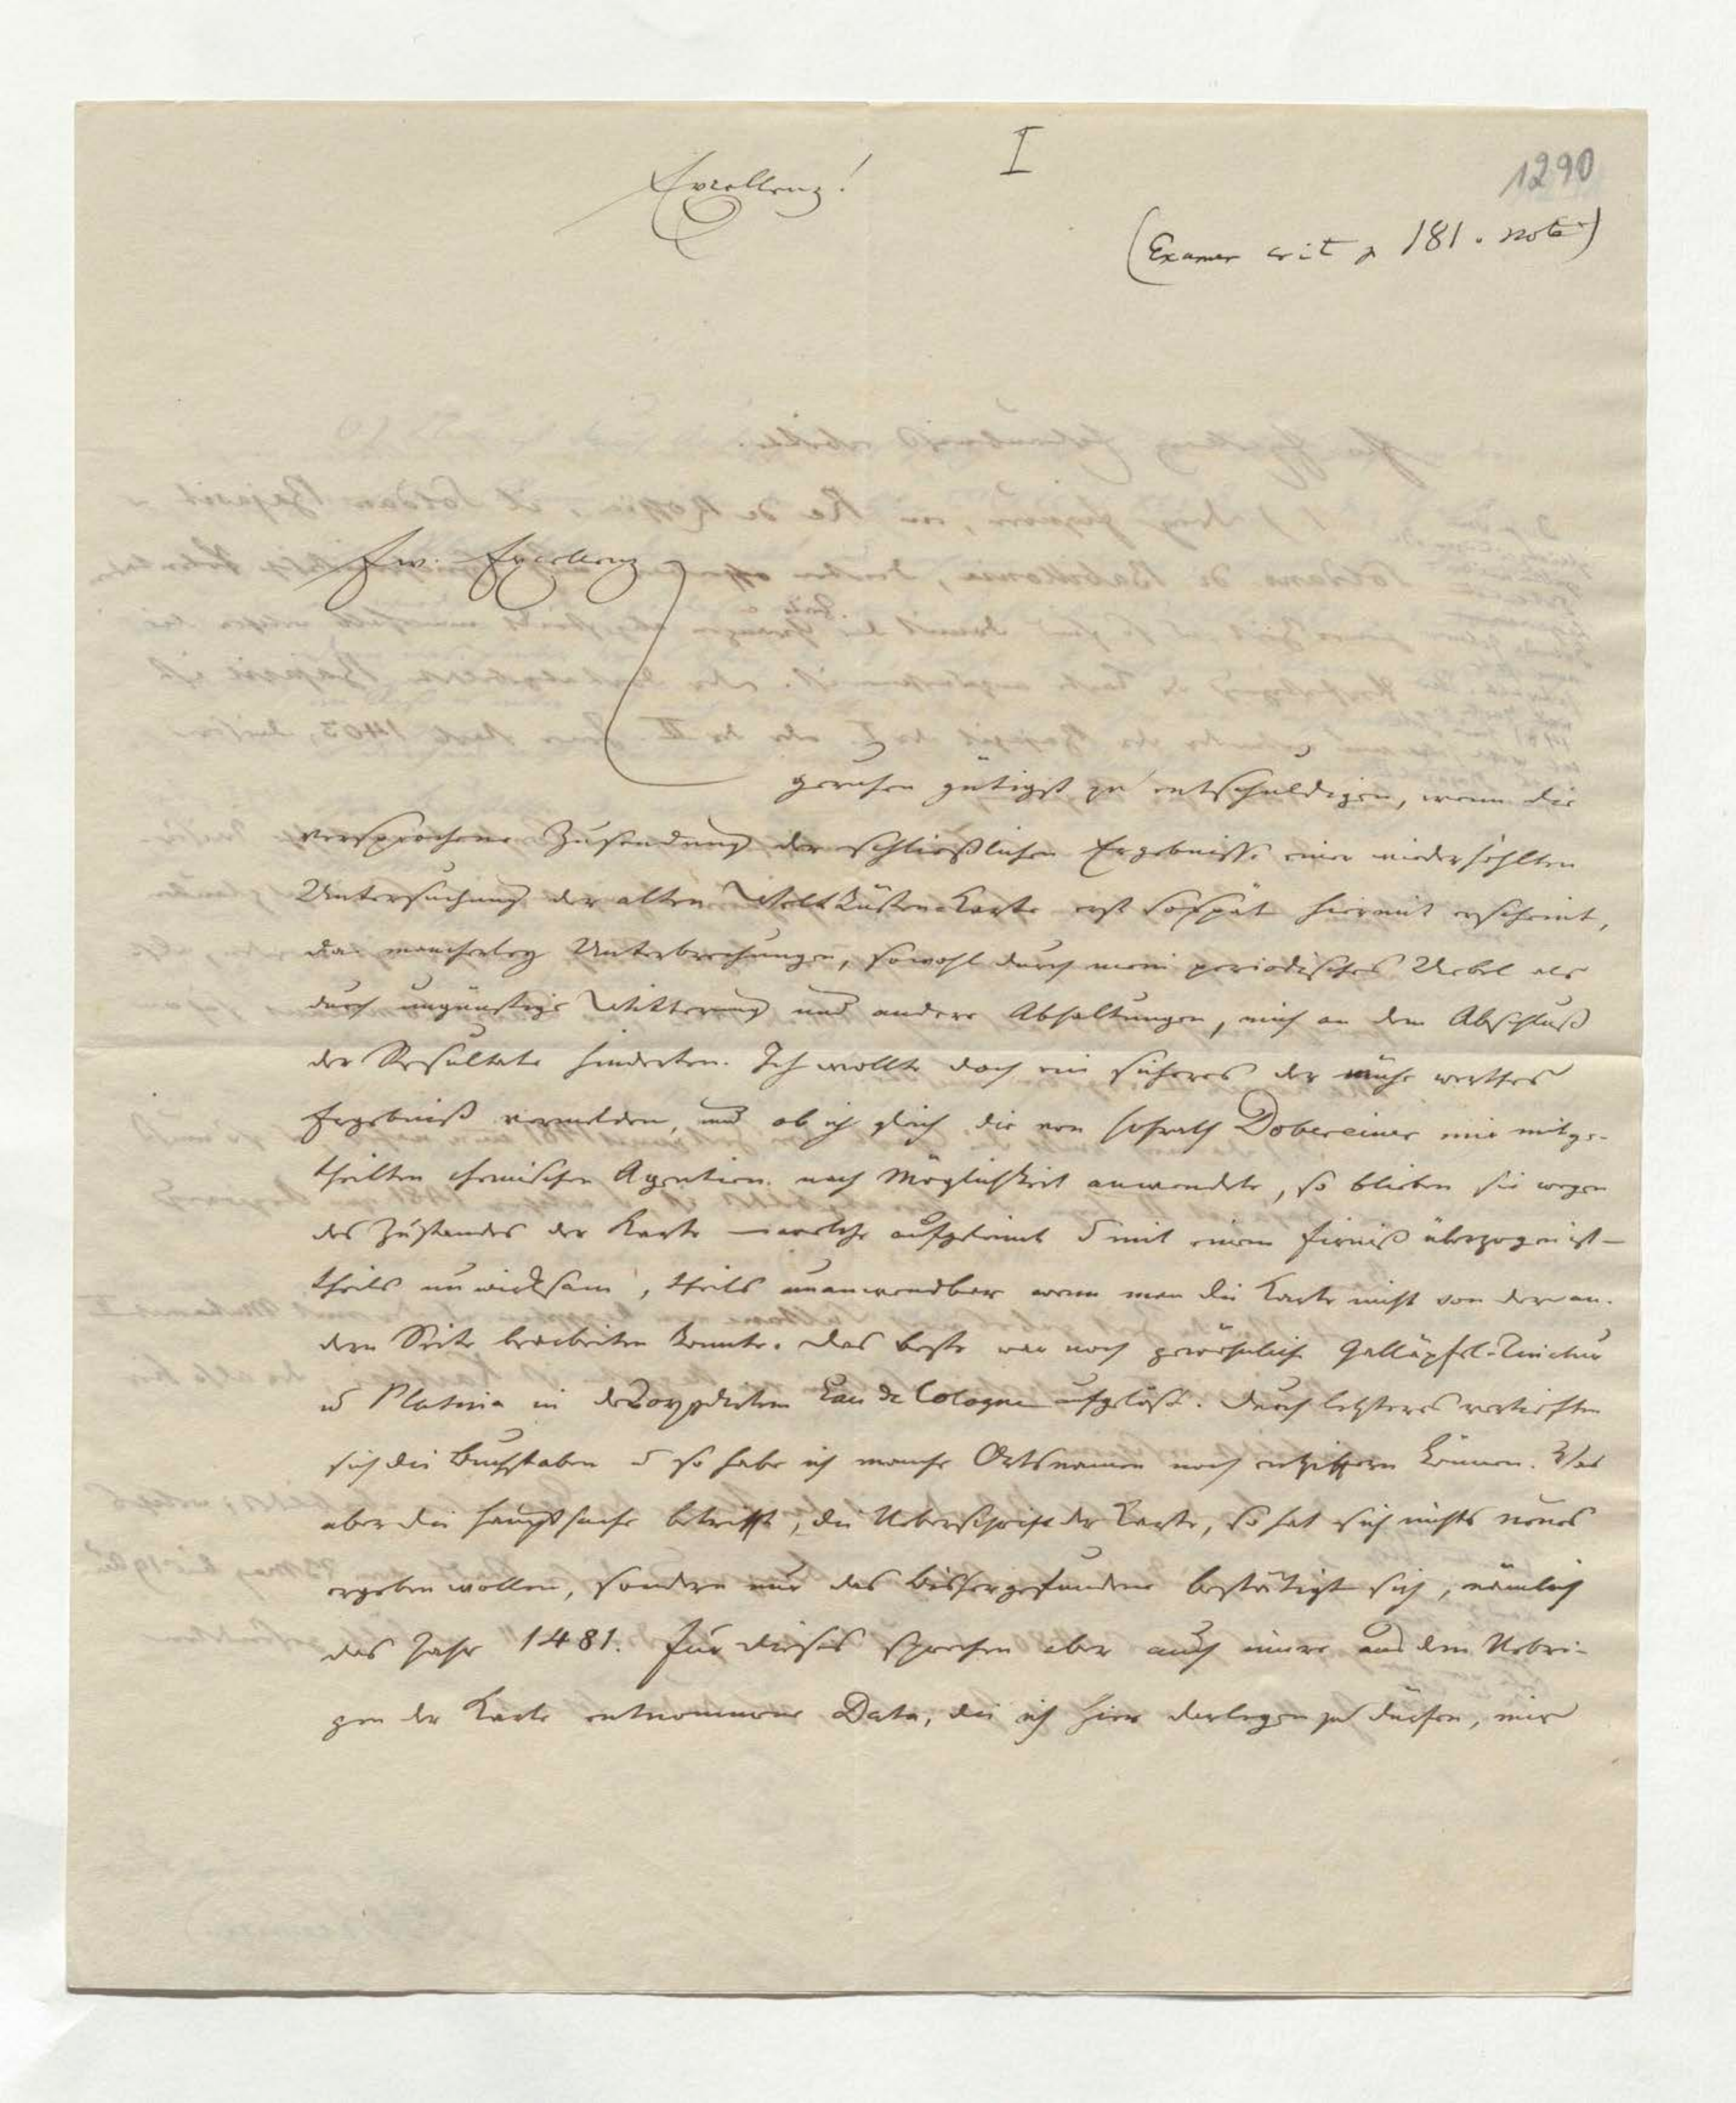 I
1290
Excellenz!
(Examen crit p 181. note)
Ew. Excellenz
geruhen gütigst zu entschuldigen, wenn die
versprochene Zusendung der schließlichen Ergebnisse einer wiederhohlten
Untersuchung der alten Weltküsten-Karte erst so spät hiermit erscheint,
da mancherley Unterbrechungen, sowohl durch mein periodisches Uebel als
durch ungünstige Witterung und andere Abhaltungen, mich an dem Abschluß
der Resultate hinderten. Ich wollte doch ein sicheres der Mühe werthes
Ergebniß vermelden, und ob ich gleich die von Hofrath Dobereiner mir mitge-
theilten chemischen Agentien nach Möglichkeit anwendete, so blieben sie wegen
des Zustandes der Karte – welche aufgeleimt u mit einem Firniß überzogen ist –
theils unwirksam, theils unanwendbar wenn man die Karte nicht von der an-
dern Seite bearbeiten konnte. Das beste war noch gewöhnliche Galläpfel-Tinctur
u Platina in Eau de Cologne aufgelöst. Durch letzteres vertieften
sich die Buchstaben u so habe ich manche Ortsnamen noch entziffern können. Was
aber die Hauptsache betrifft, die Ueberschrift der Karte, so hat sich nichts neues
ergeben wollen, sondern nur das bisher gefundene bestätigt sich, nämlich
das Jahr 1481. Für dieses sprechen aber auch innere aus dem Uebri-
gen der Karte entnommene Data, die ich hier darlegen zu dürfen, mir